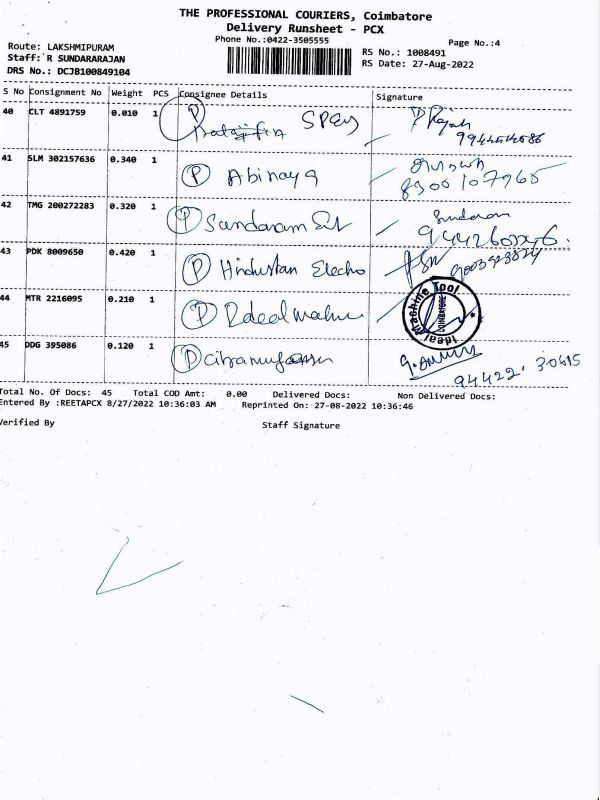 THE PROFESSIONAL COURIERS, Coimbatore
Delivery Runsheet - PCX
Phone No.:0422-3505555
Page No.:4
Route: LAKSHMIPURAM
RS No.: 1008491
Staff: R SUNDARARAJAN
RS Date: 27-Aug-2022
DRS No.: DCJB100849104
S No Consignment No Weight PCS Consignee Details Signature
40 CLT 4891759 0.010 1 P SPEy
41 SLM 302157636 0.340 1 P Abinaya 8300107965
42 TMG 200272283 0.320 1 P Sundaram Sundaram
43 PDK 8009650 0.420 1 P Hindustan Electro
44 MTR 2216095 0.210 1 P Ideal Ideal Machine Tool COIMBATORE
45 DDG 395086 0.120 1 P 94422. 30615
Total No. Of Docs: 45 Total COD Amt: 0.00 Delivered Docs: Non Delivered Docs:
Entered By :REETAPCX 8/27/2022 10:36:03 AM Reprinted On: 27-08-2022 10:36:46
Verified By Staff Signature